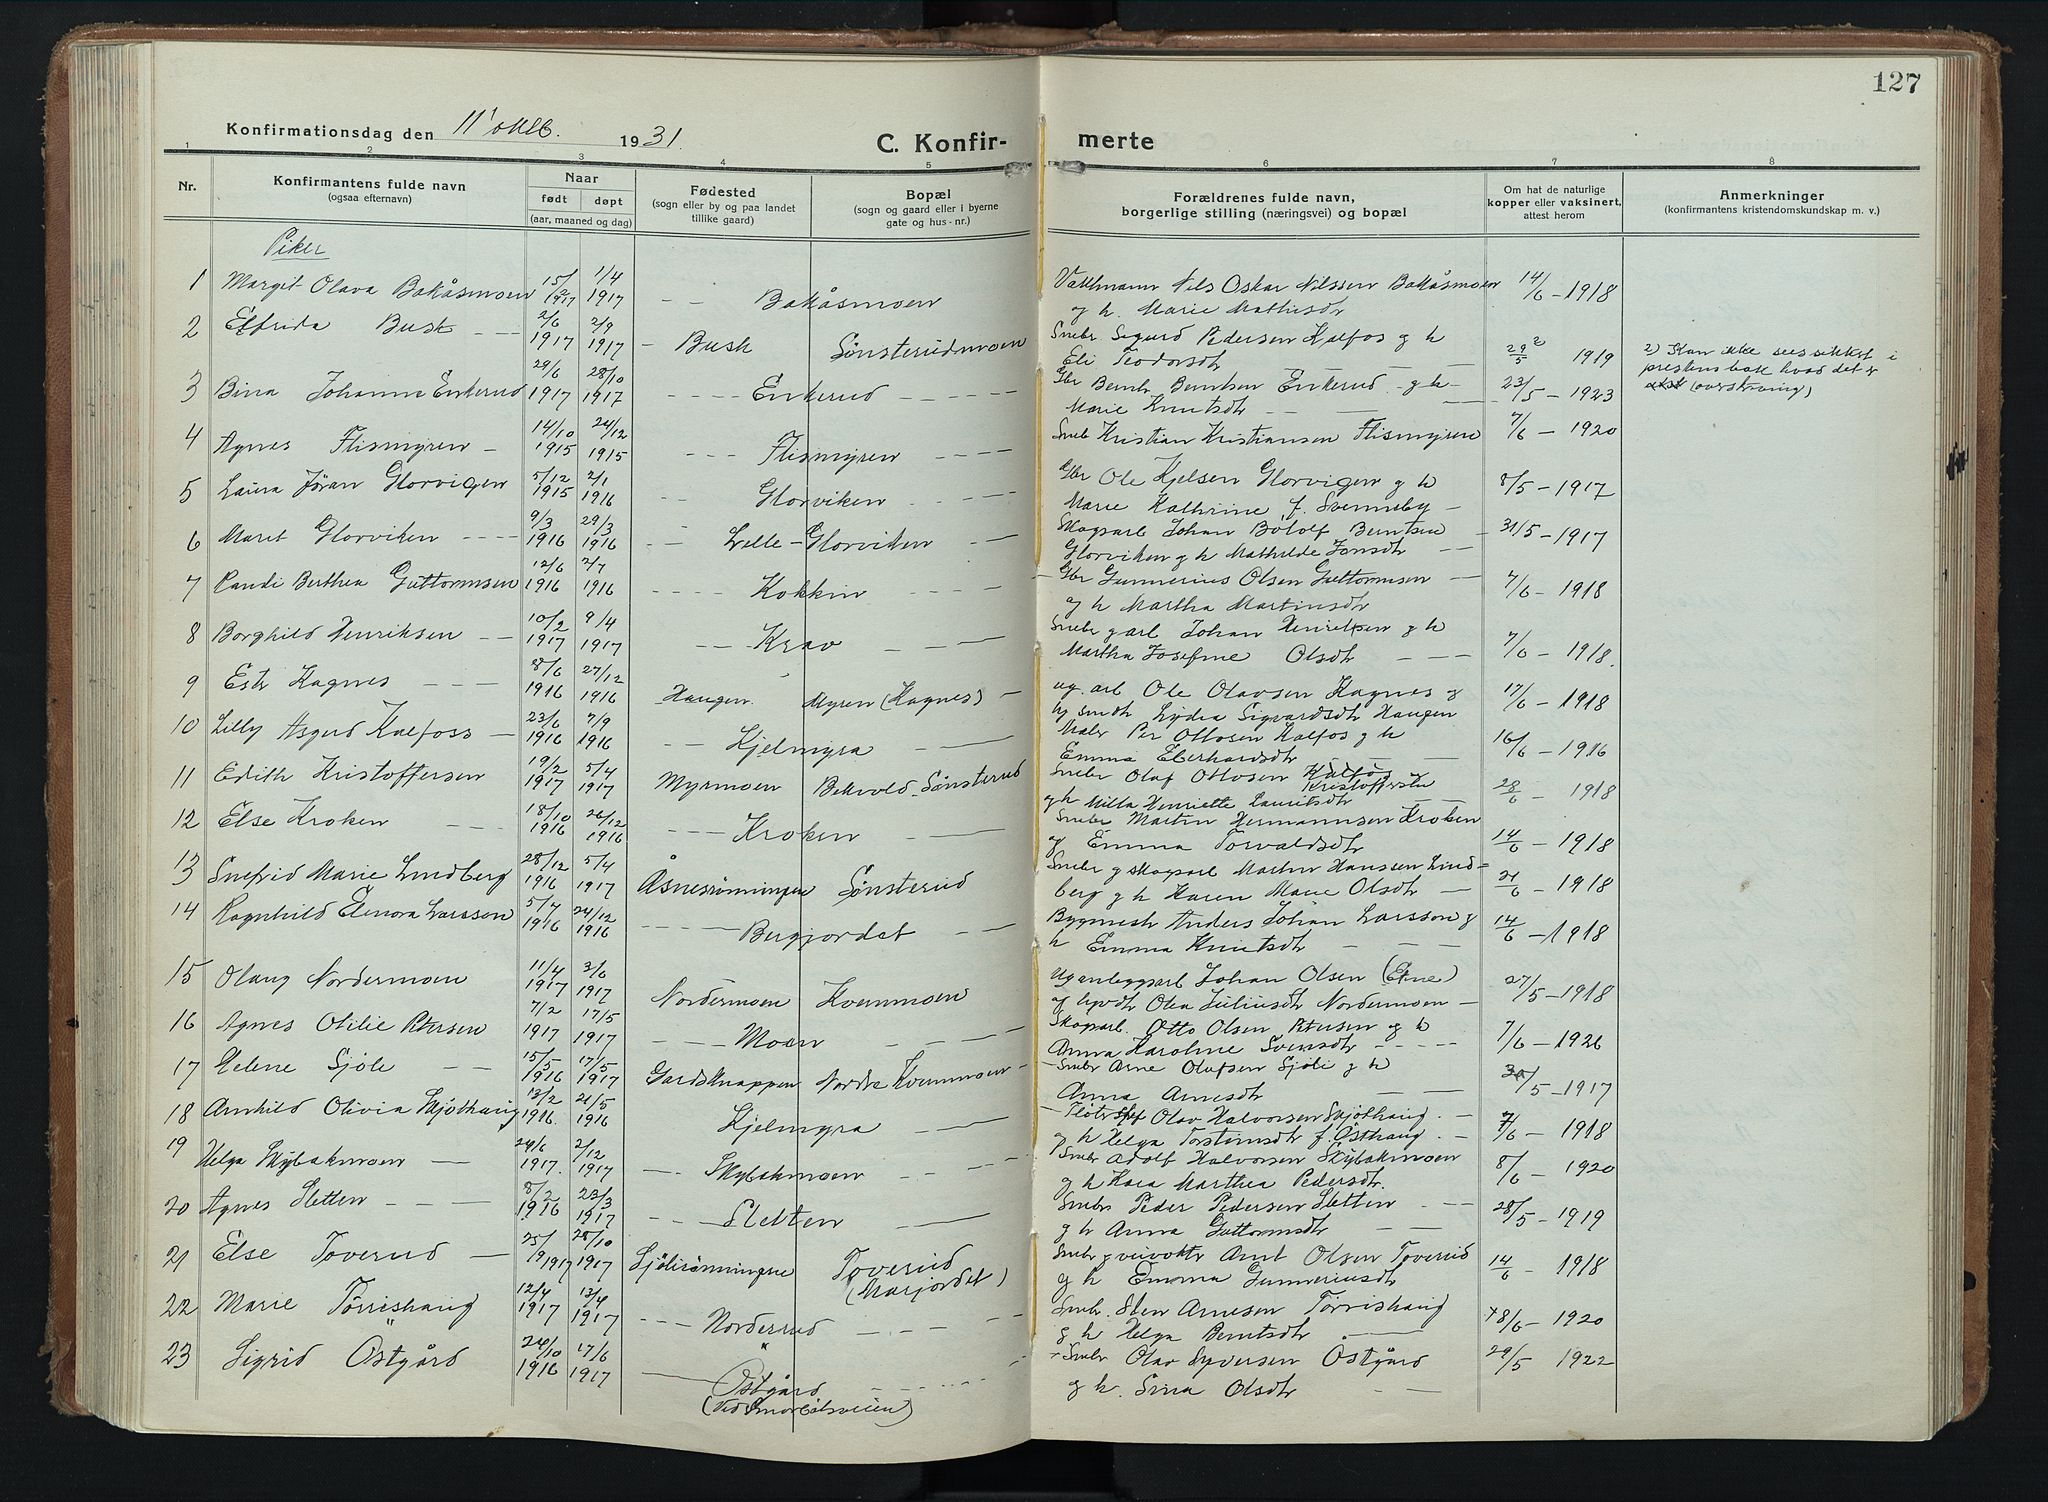 127
Konfirmationsdag den 11' oktb. 1931.
C. Konfir- merte
1 2 3 4 5 6 7 8
Nr. Konfirmantens fulde navn (ogsaa efternavn) Naar født døpt (aar, maaned og dag) Fødested (sogn eller by og paa landet tillike gaard) Bopæl (sogn og gaard eller i byerne gate og hus-nr.) Forældrenes fulde navn, borgerlige stilling (næringsvei) og bopæl Om hat de naturlige kopper eller vaksinert, attest herom Anmerkninger (konfirmantens kristendomskundskap m. v.)
Piker
1 Margit Olava Bakåsmoen 15/2 1917 1/4 1917 - - Bakåsmoen Nils Oskar Nilssen Bakåsmoen og h. Marie Mathisdtr 14/6 - 1918
2 Elfrida Busk - - 2/6 1917 2/9 1917 - Busk Sønsterudmoen Smbr Sigurd Pedersen Kalfos g h Eli Teodorsdtr 29/5 2 1919 2) Kan ikke sees sikkert i prestens bok hvad det er (overstrøing)
3 Bina Johanne Enkerud 29/6 1917 28/10 1917 - - - - Enkerud - - - - Gbr Bernt Berntsen Enkerud g h Marie Knutsdtr - - 23/5 - 1923
4 Agnes Flismyren - 14/10 1915 24/12 1915 - - - Flismyren - - - - Smbr Kristian Kristiansen Flismyren 7/6 - 1920
5 Laura Jøran Glorvigen 5/12 1915 2/1 1916 - - Glorviken - - - Gbr Ole Kjelsen Glorvigen g h Marie Kathrine f. Svenneby - 8/5 - 1917
6 Maret Glorviken - - - - 9/3 1916 29/3 1916 - - Lille-Glorviken - - Skogsarb Johan Botolf Berntsen Glorviken g h Mathilde Jonsdtr - - 31/5 - 1917
7 Randi Berthea Guttormsen 12/6 1916 2/7 1916 - - - - Kokkin - - - - Gbr Gunnerius Olsen Guttormsen - og h Martha Martinsdtr 7/6 - 1918
8 Borghild Henriksen - - 10/2 1917 9/4 1917 - - - Krav - - - Smbr g arb Johan Henriksen g h Martha Josefine Olsdtr - - - 7/6 - 1918.
9 Estr Kagnes - - - 8/6 1916 27/12 1916 Haugen Myren (Kagnes) - ug. arb Ole Olavsen Kagnes g Lydia Sigvardsdtr Haugen 17/6 - 1918
10 Lilly Asgud Kalfoss - 23/6 1916 7/9 1916 - - Kjelmyra - - Maler Per Ottosen Kalfos g h Emma Eberhardsdtr - - 16/6 - 1916
11 Edith Kristoffersen 19/2 1917 5/4 1917 Myrmoen Bekvold-Sønsterud Smbr Olaf Ottosen Kalfos Kristoffersen g h Milla Henriette Lauritsdtr 28/6 - 1918
12 Else Kroken - - 18/10 1916 26/12 1916 - - - Kroken - - Smbr Martin Hermannsen Kroken og Emma Torvaldsdtr 14/6 - 1918
13 Snefrid Marie Lindberg 28/12 1916 5/4 1917 Åsnesrønningen Sønsterud Smbr g skogsarb Martin Hanssen Lindberg g h Karen Marie Olsdtr - 21/6 - 1918
14 Ragnhild Elenora Larsson 5/7 1916 24/12 1916 - - - - Bergjordet - - Bygmestr Anders Johan Larsson g h Emma Knutsdtr - - - 14/6 - 1918
15 Olaug Nordermoen 11/4 1917 3/6 1917 Nordermoen Kvernmoen Ug anleggsarb Johan Olsen (Ekne) og Olea Juliusdtr Nordermoen - 27/5 - 1918
16 Agnes Otilie Petersen 7/2 1917 17/5 1917 - - - Moen - - - Skogsarb. Otto Olsen Petersen og h Anna Karoline Svensdtr - - - - 7/6 - 1926
17 Helene Sjøle - - 15/5 1916 17/5 1917 Gardsknappen Nordre Kvernmoen - Smbr Arne Olafsen Sjøle g h Anna Arnesdtr - - 30/5 - 1917
18 Arnhild Olivia Skjøthaug 13/2 1916. 21/5 1916 Kjelmyra - - Fløterskf Olav Halvorsen Skjøthaug. - og h Helga Torsteinsdtr f. Østhaug. - 7/6 - 1918
19 Helga Skybakmoen - 24/6 1917. 2/12 1917 - - Skybakmoen - - - Smbr Adolf Halvorsen Skybakmoen g h Kaia Marthea Pedersdtr. 8/6 - 1920
20 Agnes Sletten - - - 8/2 1916 23/3 1917 - - Sletten - - Smbr Peder Pedersen Sletten - - g h Anna Guttormsdtr - - 28/5 - 1919
21 Else Toverud - 25/9 1917 28/10 1917 Sjølirønningene Toverud (Marjordet) Smbr g veivoktr Arnt Olsen Toverud g h Emma Gunneriusdtr 14/6 - 1918
22 Marie Torrishaug 12/4 1917 13/4 1917 - - - Norderud - - - - Smbr. Sten Arnesen Torrishaug g h Helga Berntsdtr - 8/6 - 1920
23 Sigrid Østgård 24/10 1916 17/6 1917 - Østgård - - - - (Ved Smørbølsveien) Smbr Olav Syversen Østgård g h. Sina Olsdtr - - 29/5 - 1922